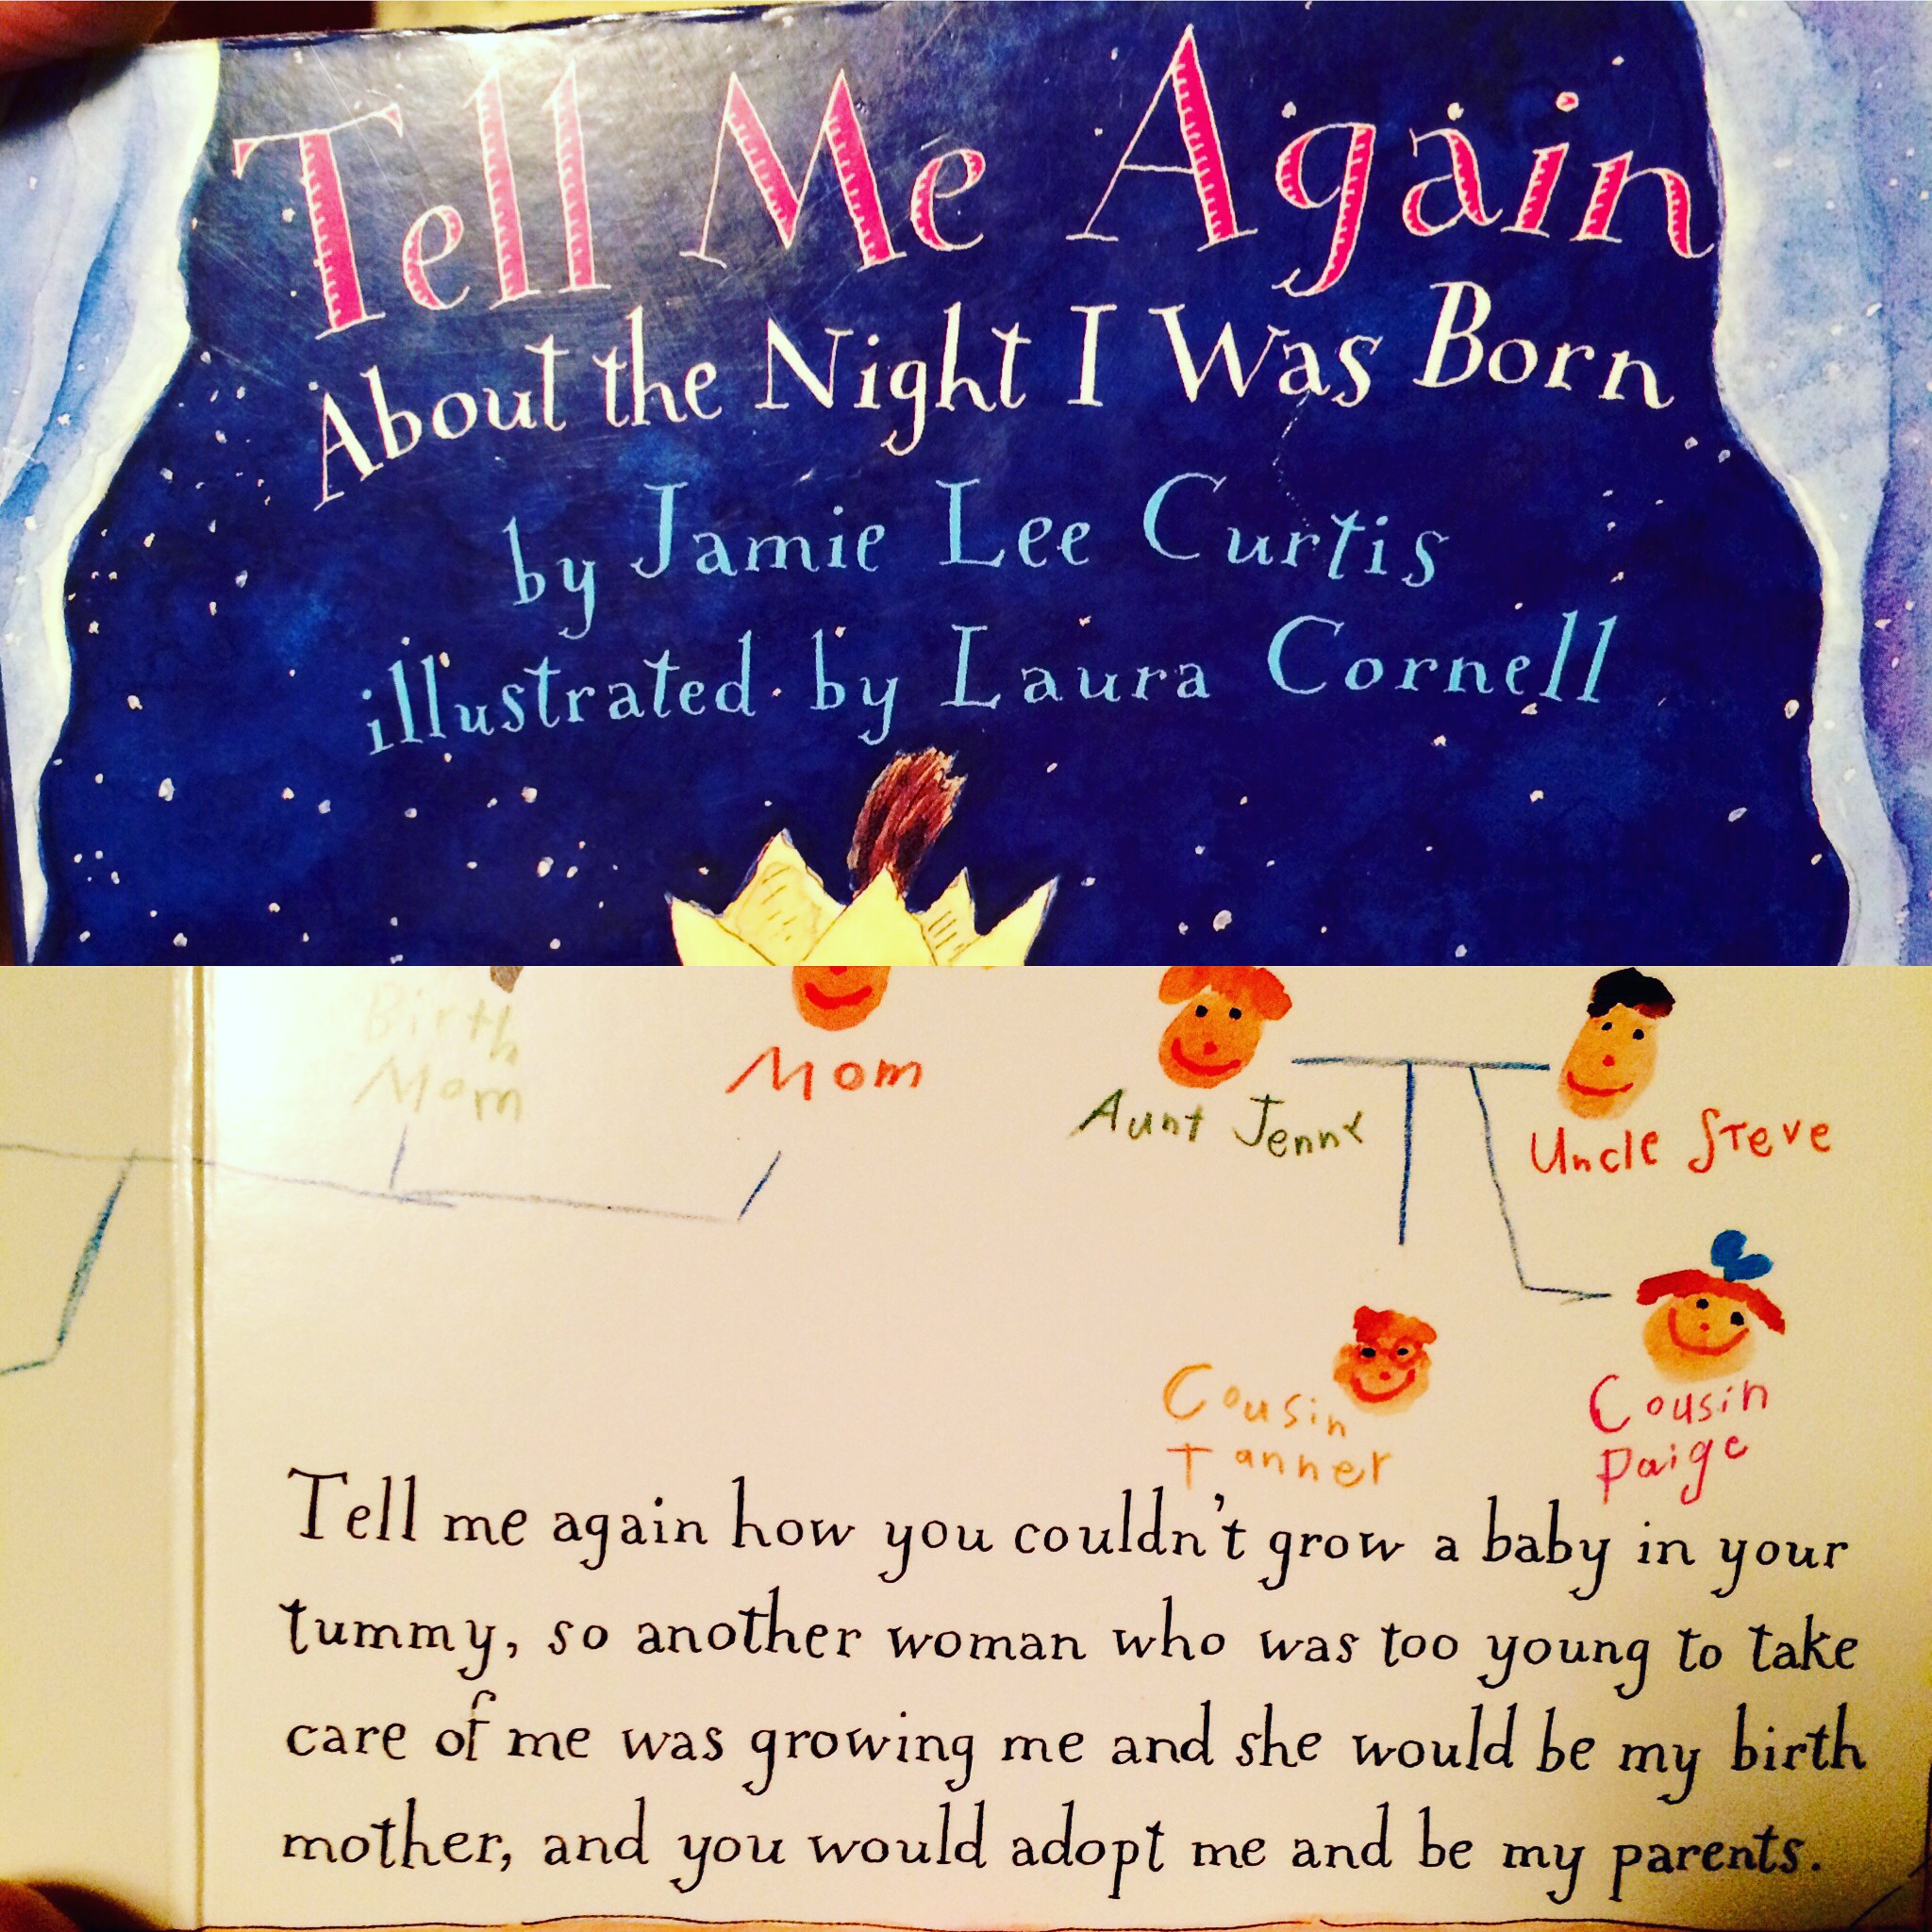 Tell Me Again
About the Night I Was Born
by Jamie Lee Curtis
illustrated by Laura Cornell
Birth
Mom
Mom
Aunt Jenny
Uncle Steve
Cousin
Tanner
Cousin
Paige
Tell me again how you couldn't grow a baby in your
tummy, so another woman who was too young to take
care of me was growing me and she would be my birth
mother, and you would adopt me and be my parents.